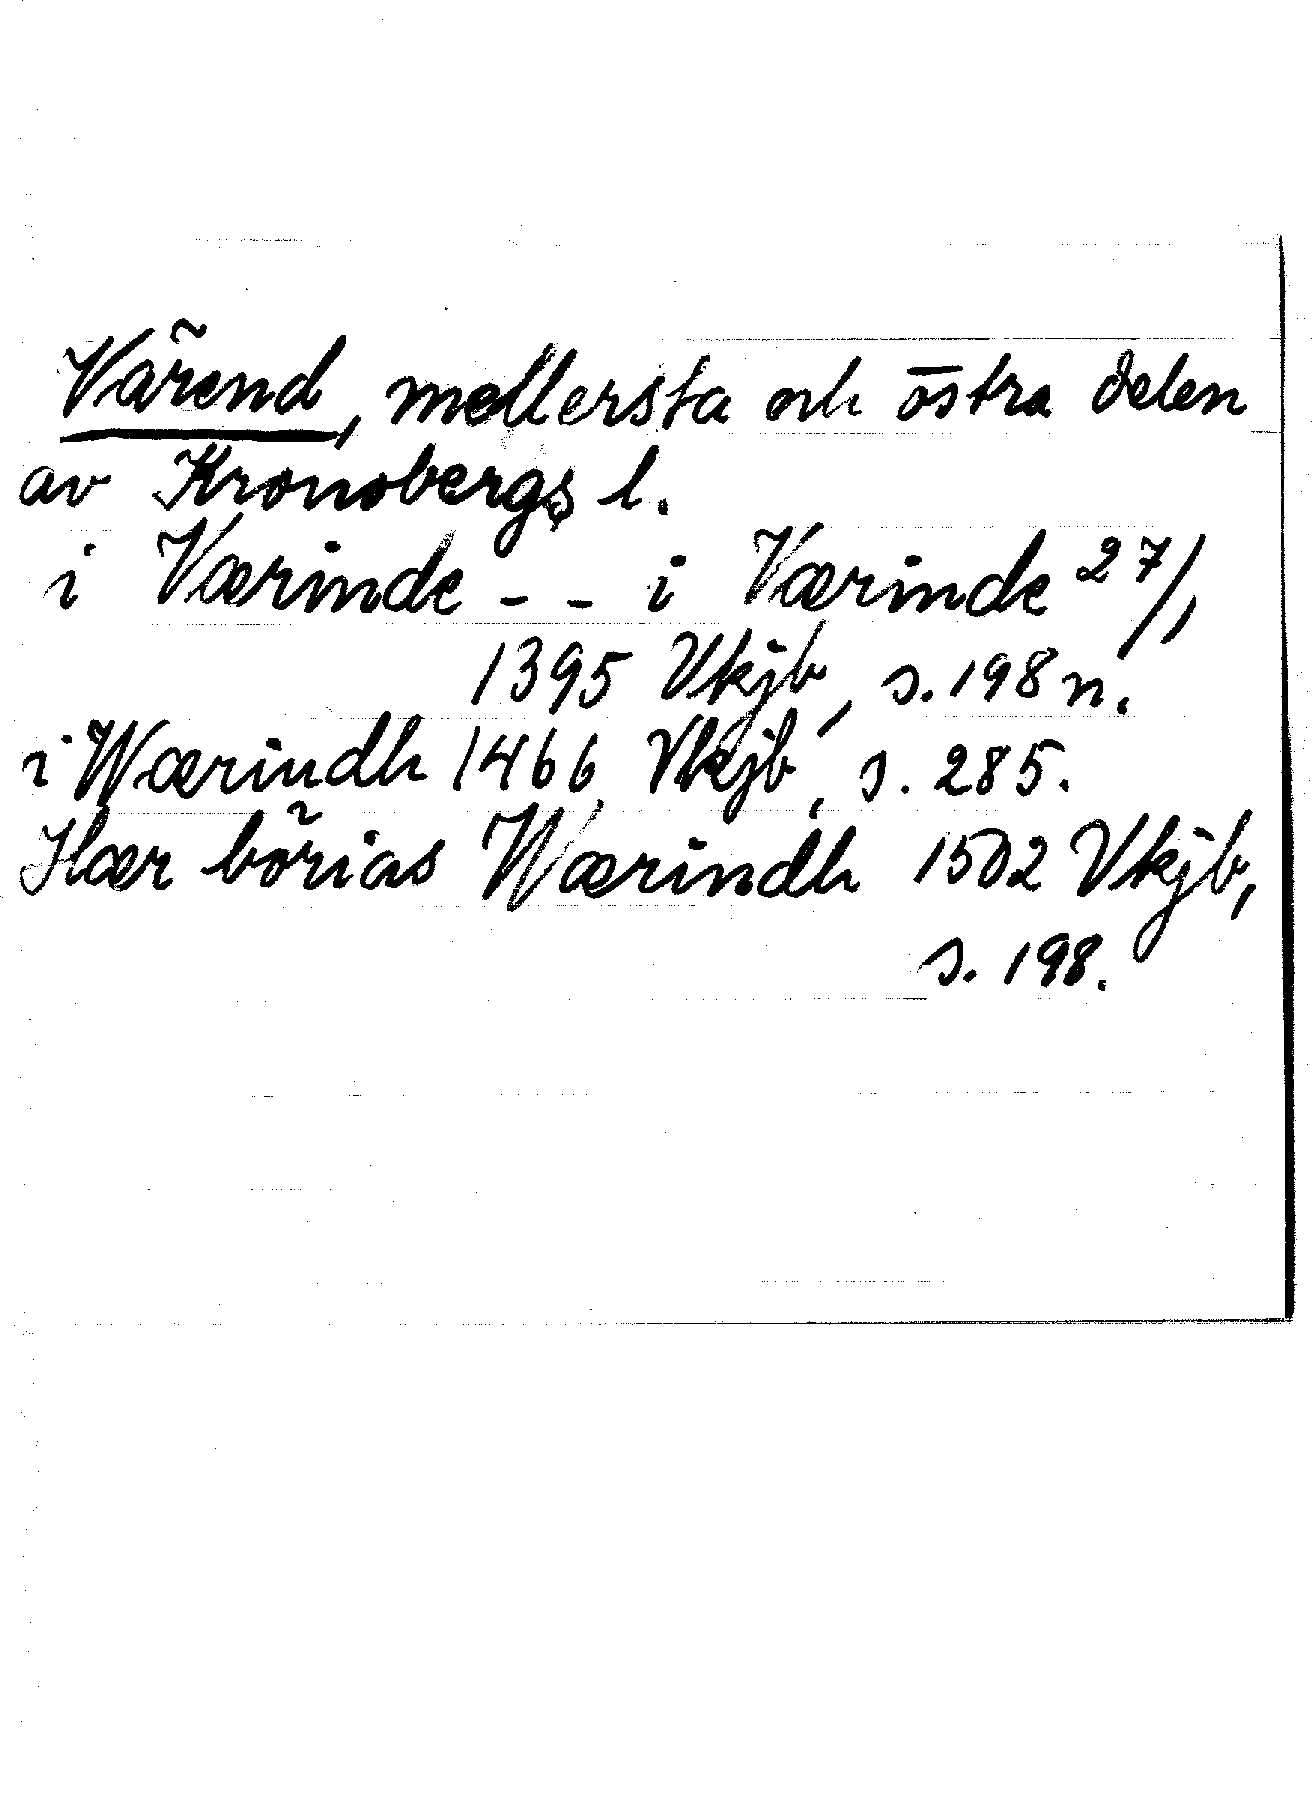 Värend, mellersta och östra delen
av Kronobergs l.
i Værinde - - i Værinde 27/1
1395 Vkjb, s. 198 n.
i Wærindh 1466, Vkjb, s. 285.
Hær börias Wærindh 1502 Vkjb,
s. 198.